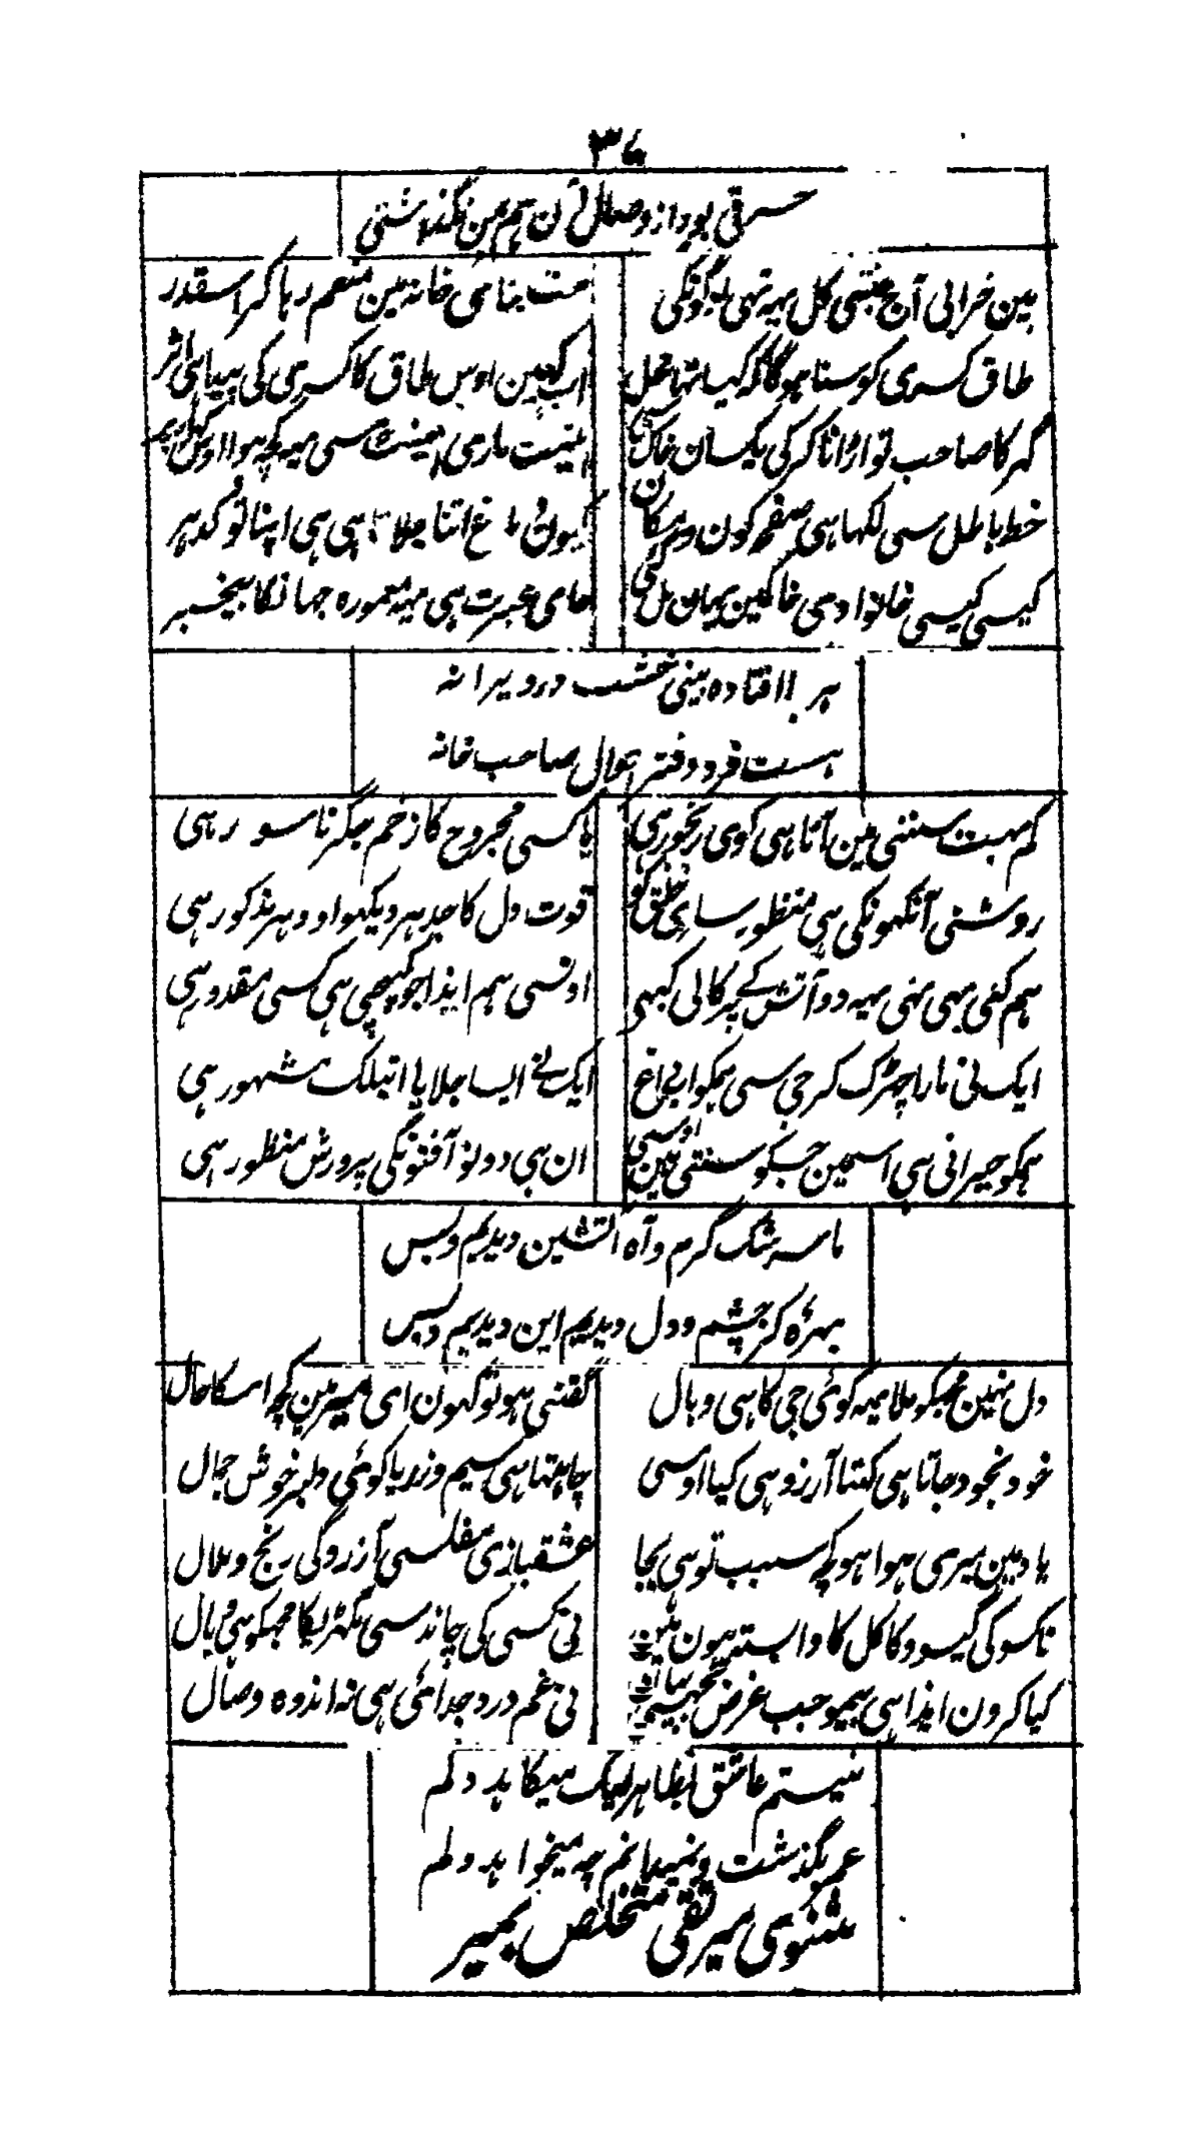 ۳۷
حسرتی بود از وصال آن هم بمن نگذاشتی
ہین خرابی آج جتنی کل یہہ تہی لوگونکی
مت بنامی خانہ مین منعم رہا کر اسقدر
طاق کسری کو سنا ہوگا کہ کیا تہا محل
اب کہین اوس طاق کا کسری کی پیدا ہی اثر
گہر کا صاحب تو اڑانا کر کی یکسان خاک
اینٹ ماری اینٹ سی یہہ کچہ ہوا اوس
خط باطل سی لکہا ہی صفحہ کون و مکان
کیون دماغ اتنا جلاتا ہی ہی اپنا تو کدہر
کیسی کیسی خانوادی خاکمین یہان مل گئی
جای عبرت ہی یہہ معمورہ جہانکا بیخبر
ہر باافتادہ بینی خشت در ویرانہ
ہست فرد دفتر احوال صاحب خانہ
کم بہت سننی مین آتا ہی کوی رنجور ہی
یا کسی مجروح کا زخم جگر ناسور ہی
روشنی آنکہونکی ہی منظور ساری خلق کو
قوت دل کا جدہر دیکہو اودہر مذکور ہی
ہم کئی بہی نہی یہہ دو آتش کے پرکالی کبہی
اونسی ہم ایذا جو کہیچی ہی کسی مقدور ہی
ایک نی مارا چہڑک کر جی سی ہمکو ابی داغ
ایک نے ایسا جلایا اتبلک مشہور ہی
ہمکو حیرانی ہی اسمین جسکو سنتی ہین اوسی
ان ہی دونو آفتونکی پرورش منظور ہی
ما سرشک گرم و آہ آتشین دیدیم و بس
بہرۂ کز چشم و دل دیدیم این دیدیم و بس
دل نہین مجکو ملا یہہ کوئی جی کا ہی وبال
گفتنی ہو تو کہون ای میر مین کچہ اسکا حال
خود بخود جاتا ہی کہتا آرزو ہی کیا اوسی
چاہتا ہی سیم و زر یا کوئی دلبر خوش جمال
یا دمین میری ہوا ہو کچہ سبب تو ہی بجا
عشقبازی مفلسی آزردگی رنج و ملال
ناکسو کی گیسو و کاکل کا وابستہ ہون مین
نی کسی کی چاند سی مکہڑیکا مجہکو ہی خیال
کیا کرون ایذا ہی بیموجب غرض کہینچی
نی غم درد جدائی ہی نہ اندوہ وصال
نیستم عاشق بظاہر لیک میکاہد دلم
عمر بگذشت و نمیدانم چہ میخواہد دلم
مثنوی میر تقی متخلص بمیر